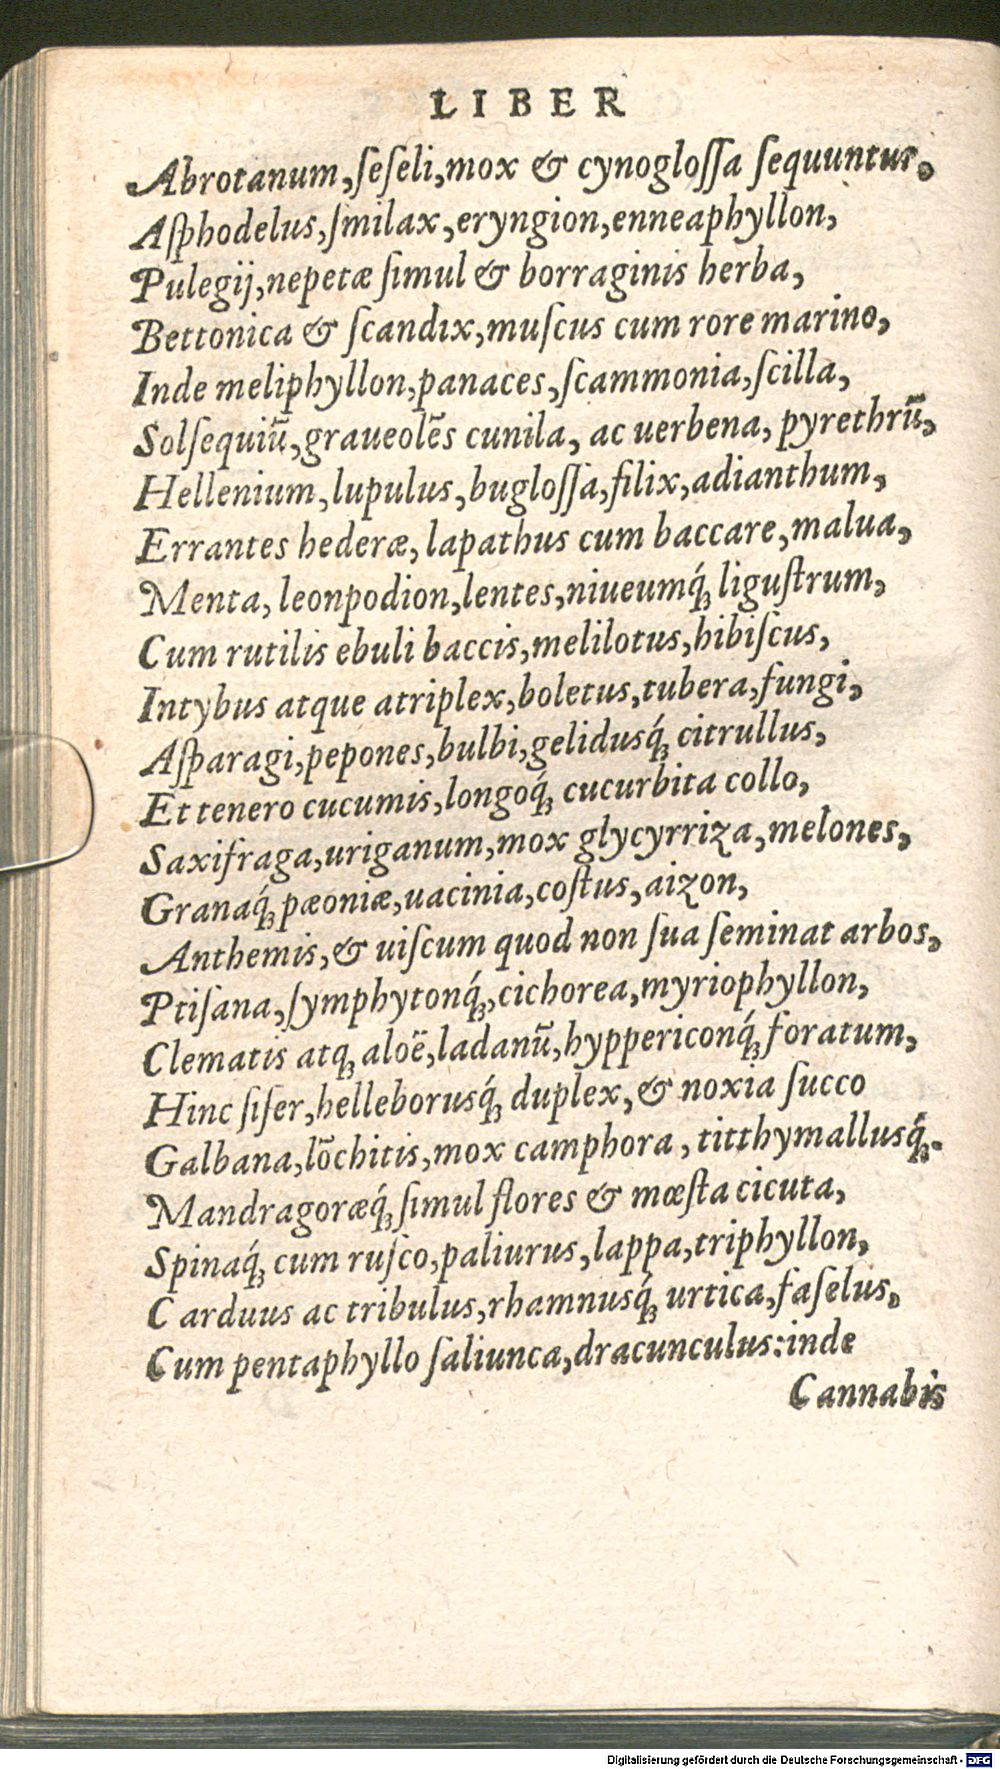 LIBER
Abrotanum, ſeſeli, mox & cynogloſſa ſequuntur,
Aſphodelus, ſmilax, eryngion, enneaphyllon,
Pulegij, nepetæ ſimul & borraginis herba,
Bettonica & ſcandix, muſcus cum rore marino,
Inde meliphyllon, panaces, ſcammonia, ſcilla,
Solſequiū, graueolẽs cunila, ac uerbena, pyrethrū,
Hellenium, lupulus, bugloſſa, filix, adianthum,
Errantes hederæ, lapathus cum baccare, malua,
Menta, leonpodion, lentes, niueumq́; liguſtrum,
Cum rutilis ebuli baccis, melilotus, hibiſcus,
Intybus atque atriplex, boletus, tubera, fungi,
Aſparagi, pepones, bulbi, gelidusq́; citrullus,
Et tenero cucumis, longoq́; cucurbita collo,
Saxifraga, uriganum, mox glycyrriza, melones,
Granaq́; pæoniæ, uacinia, coſtus, aizon,
Anthemis, & uiſcum quod non ſua ſeminat arbos,
Ptiſana, ſymphytonq́;, cichorea, myriophyllon,
Clematis atq; aloë, ladanū, hyppericonq́; foratum,
Hinc ſiſer, helleborusq́; duplex, & noxia ſucco
Galbana, lōchitis, mox camphora, titthymallusq́;.
Mandragoræq́; ſimul flores & mœſta cicuta,
Spinaq́; cum ruſco, paliurus, lappa, triphyllon,
Carduus ac tribulus, rhamnusq́; urtica, faſelus,
Cum pentaphyllo ſaliunca, dracunculus: inde
Cannabis
Digitalisierung gefördert durch die Deutsche Forschungsgemeinschaft - DFG